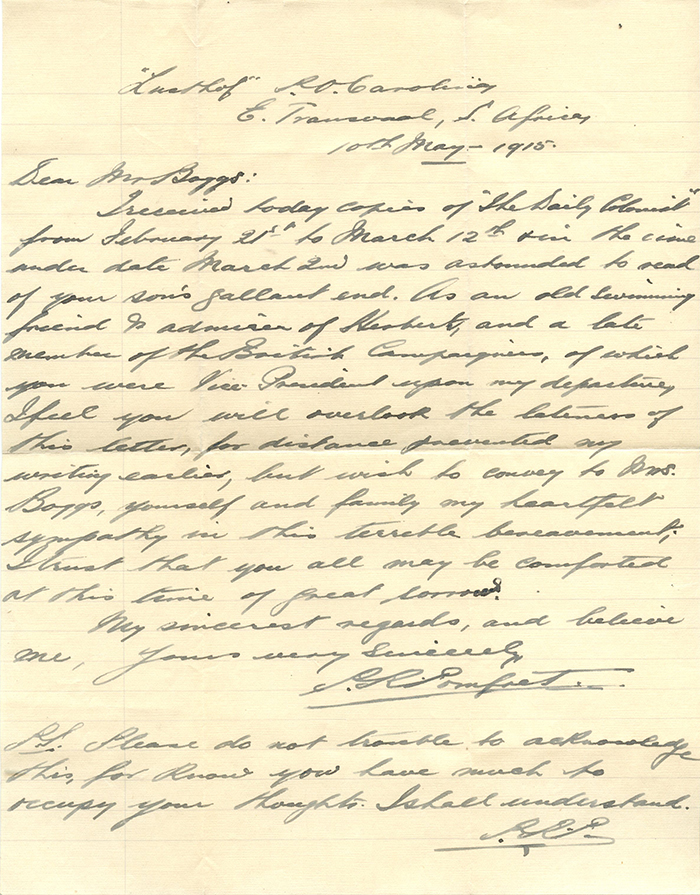 "Lusthof" P.O. Carolina,
E. Transvaal, S. Africa,
10th May – 1915.
Dear Mr Boggs:
I received today copies of "The Daily Colonist"
from February 21st to March 12th & in the issue
under date March 2nd was astounded to read
of your son's gallant end. As an old swimming
friend & admirer of Herbert, and a late
member of the British Campaigners, of which
you were Vice President upon my departure,
I feel you will overlook the lateness of
this letter, for distance prevented my
writing earlier, but wish to convey to Mrs.
Boggs, yourself and family my heartfelt
sympathy in this terrible bereavement;
I trust that you all may be comforted
at this time of great sorrow.
My sincerest regards, and believe
me, Yours very Sincerely,
Pomfret.
P.S. Please do not trouble to acknowledge
this, for know you have much to
occupy your thoughts. I shall understand.